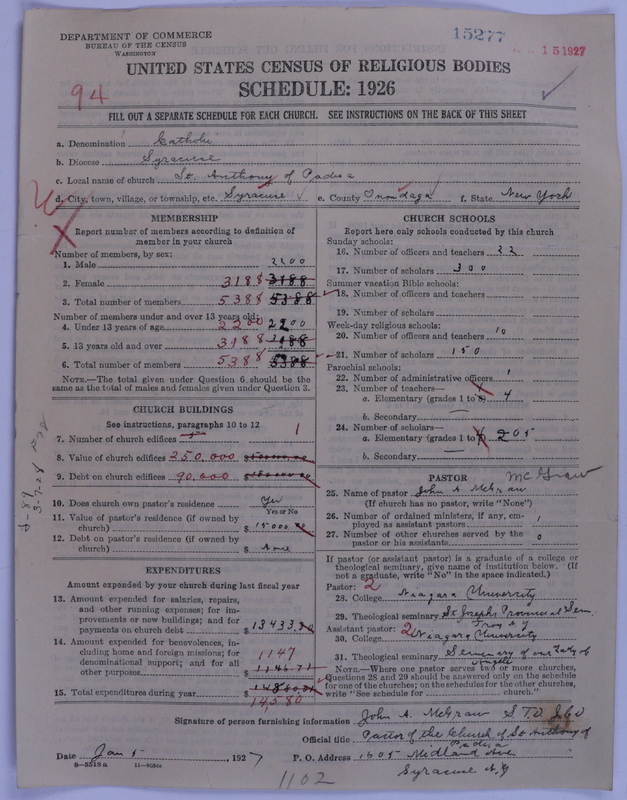 DEPARTMENT OF COMMERCE
BUREAU OF THE CENSUS
WASHINGTON
15277
15 1927
UNITED STATES CENSUS OF RELIGIOUS BODIES
SCHEDULE: 1926
94
FILL OUT A SEPARATE SCHEDULE FOR EACH CHURCH. SEE INSTRUCTIONS ON THE BACK OF THIS SHEET
a. Denomination Catholic
b. Diocese Syracuse
c. Local name of church St. Anthony of Padua
d. City, town, village, or township, etc. Syracuse e. County Onondaga f. State New York
MEMBERSHIP
Report number of members according to definition of
member in your church
Number of members, by sex:
1. Male 2200
2. Female 3188 3188
3. Total number of members 5388 5388
Number of members under and over 13 years old:
4. Under 13 years of age 2200 2200
5. 13 years old and over 3188 3188
6. Total number of members 5388 5388
NOTE.—The total given under Question 6 should be
same as the total of males and females given under Question 3.
CHURCH BUILDINGS
See instructions, paragraphs 10 to 12
7. Number of church edifices 1
8. Value of church edifices 250,000
9. Debt on church edifices 90,000
10. Does church own pastor's residence Yes
Yes or No
11. Value of pastor's residence (if owned by
church) $ 15000
12. Debt on pastor's residence (if owned by
church) $ None
EXPENDITURES
Amount expended by church during last fiscal year
13. Amount expended for salaries, repairs,
and other running expenses; for im-
provements or new buildings; and for
payments on church debt $ 13433.
14. Amount expended for benevolences, in-
cluding home and foreign missions; for
denominational support; and for all
other purposes 1147
$ 1146 71
15. Total expenditures during year $
14,580
CHURCH SCHOOLS
Report here only schools conducted by this church
Sunday schools:
16. Number of officers and teachers 22
17. Number of scholars 300
Summer vacation Bible schools:
18. Number of officers and teachers
19. Number of scholars
Week-day religious schools:
20. Number of officers and teachers 10
21. Number of scholars 150
Parochial schools:
22. Number of administrative officers 1
23. Number of teachers—
a. Elementary (grades 1 to 8) 4
b. Secondary
24. Number of scholars—
a. Elementary (grades 1 to 8) 4 205
b. Secondary
PASTOR McGraw
25. Name of pastor John A McGraw
(If church has no pastor, write "None")
26. Number of ordained ministers, if any, em-
ployed as assistant pastors 1
27. Number of other churches served by the
pastor or his assistants 0
If pastor (or assistant pastor) is a graduate of a college or
theological seminary, give name of institution below. (If
not a graduate, write "No" in the space indicated.)
Pastor: 2
28. College Niagara University
29. Theological seminary St Josephs Provincial Sem.
Troy N Y
Assistant pastor: 2
30. College Niagara University
31. Theological seminary Seminary of our Lady of
Angels
NOTE.—Where one pastor serves two or more churches,
Questions 28 and 29 should be answered only on the schedule
for one of the churches; on the schedules for the other churches,
write "See schedule for church."
Signature of person furnishing information John A. McGraw S.T.D
Official title Pastor of the Church of St Anthony of
Padua
Date Jan 5, 1927 P. O. Address 1605 Midland Ave
Syracuse N.Y
8—5518a
1102